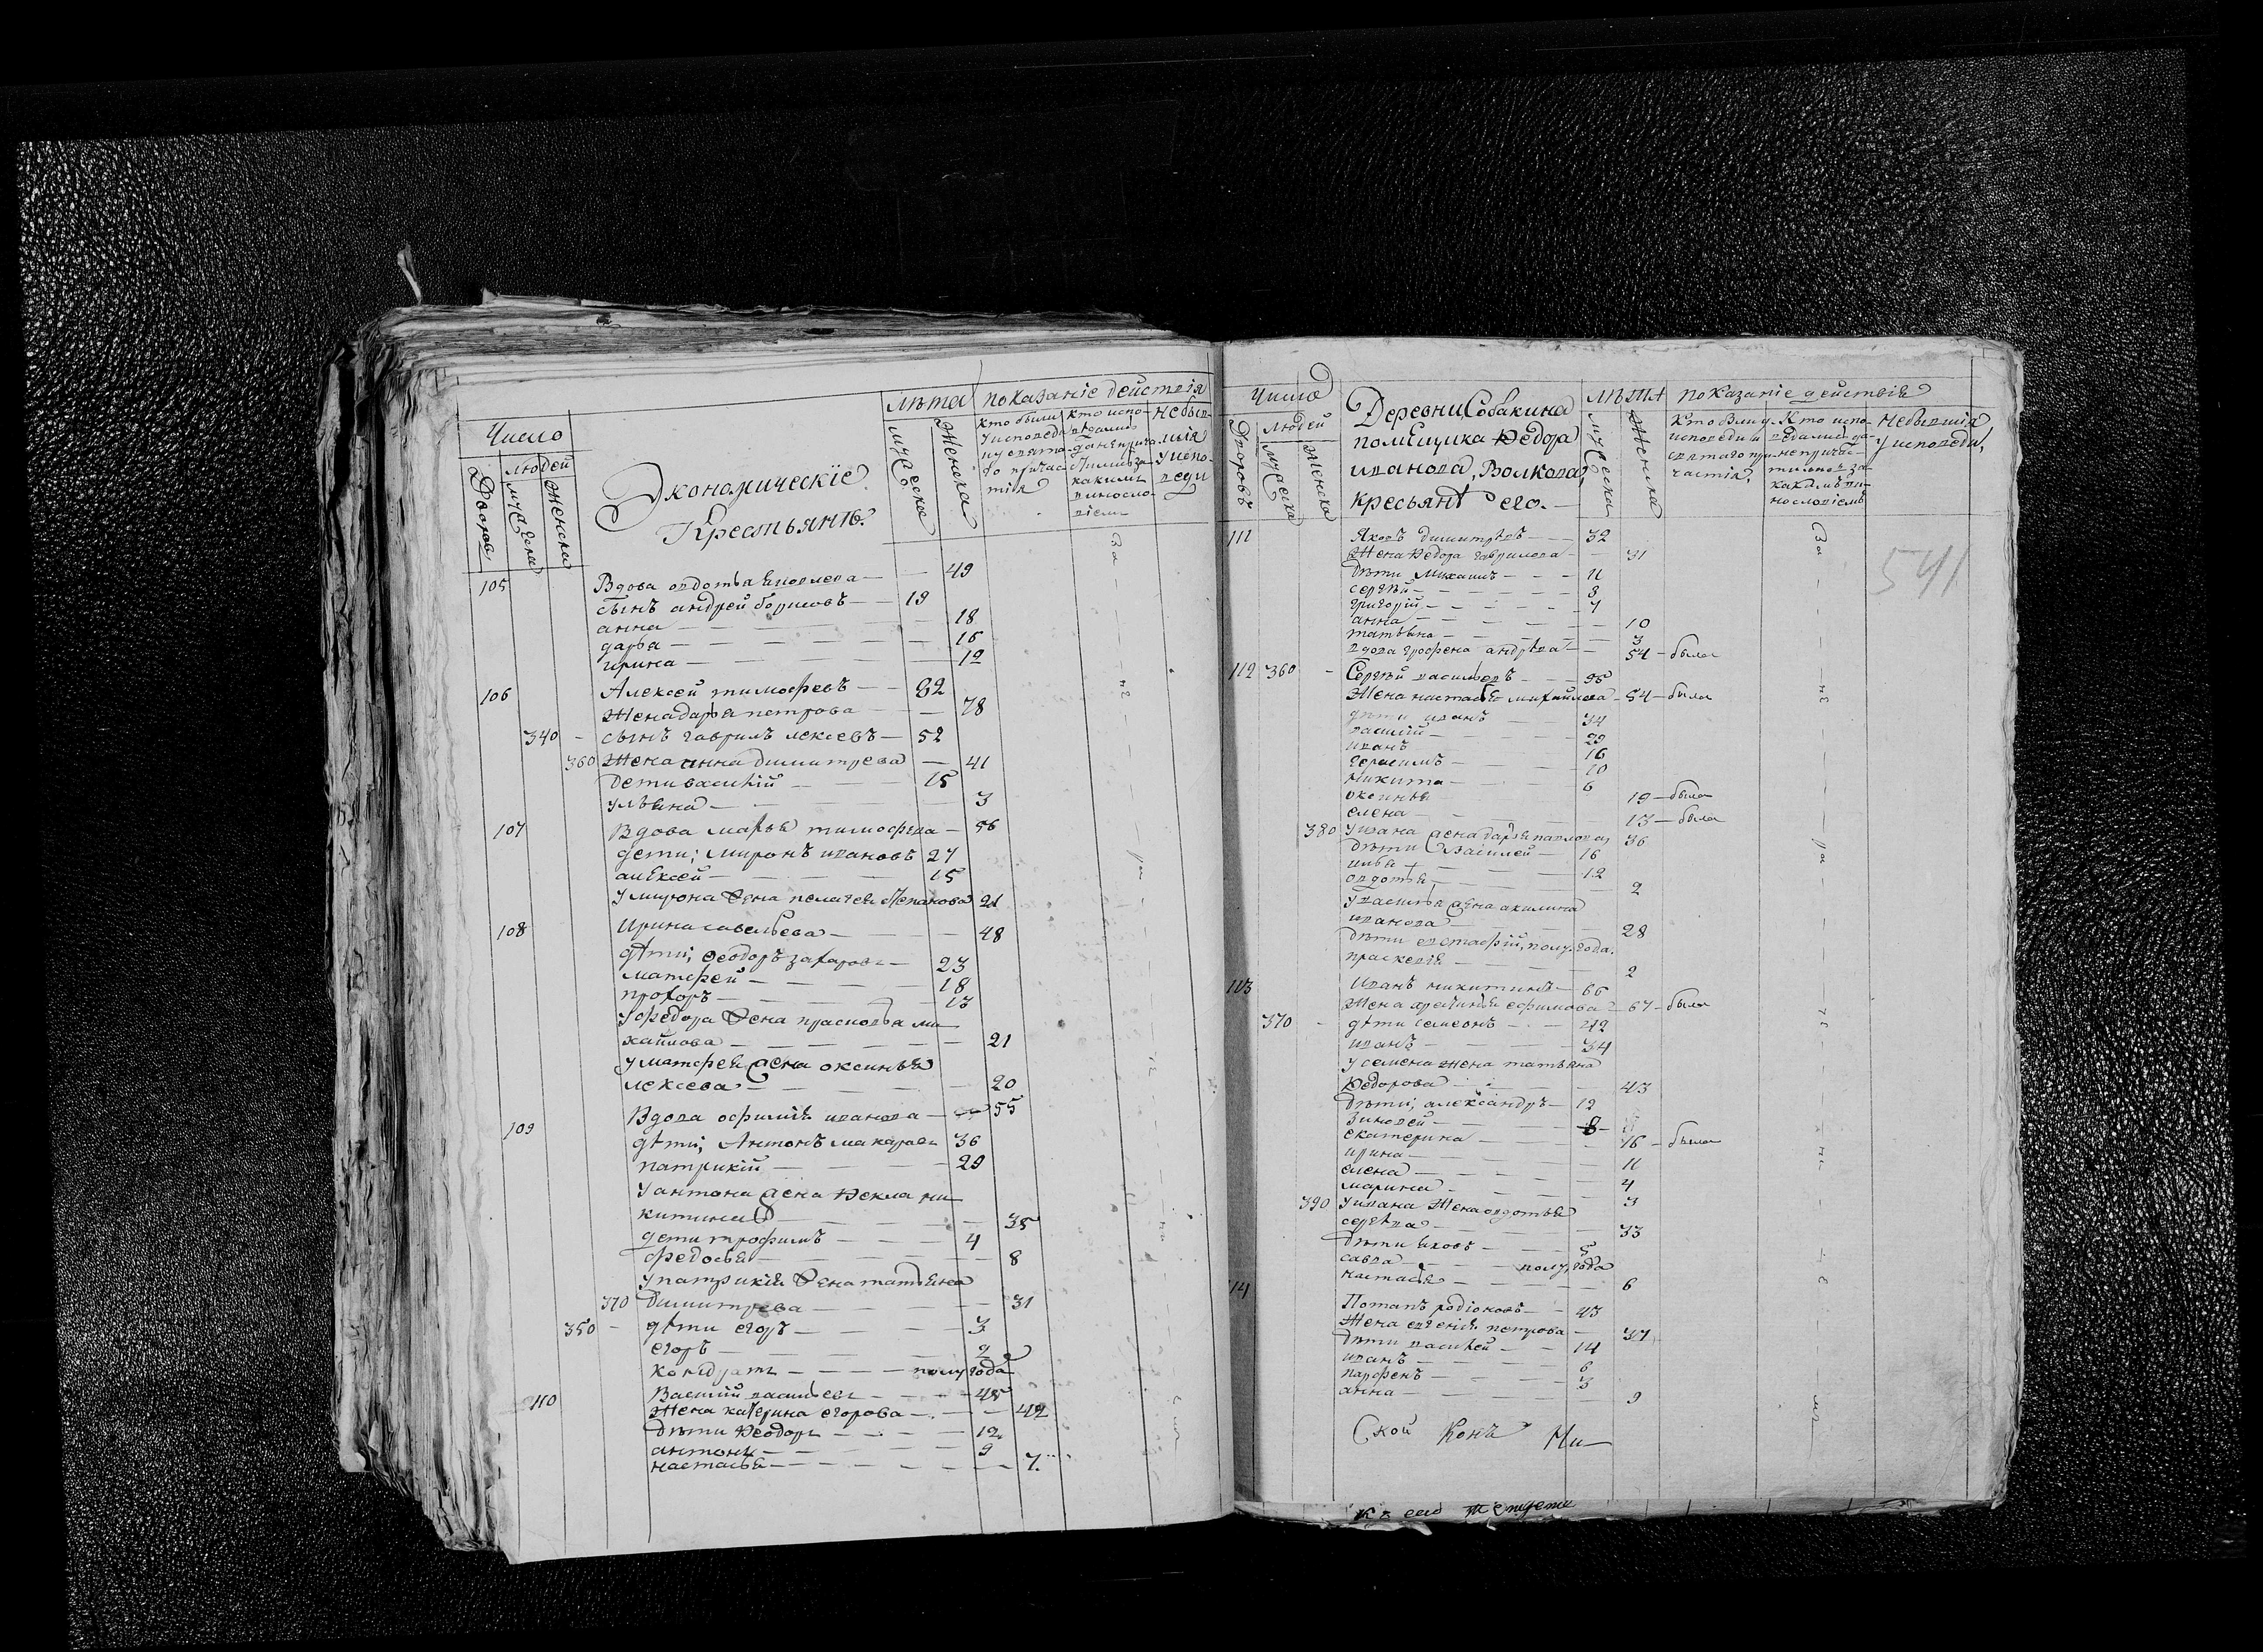 Число
Дворов
людей
мужеска
женска
Экономическіе
Крестьянѣ.
лѣта
мужеска
женска
показаніе действія
Кто были
у исповеди
и святаго
причас
тія
Кто испо
ведались
какимъ
виносло
віемъ
Небыв-
шія
у испо-
веди
105 Вдова авдотья яковлева — 49
сынъ андрей борисовъ — 19
анна — 18
дарья — 15
ирина — 12
106 Алексей тимофеевъ — 82
Жена дарья петрова — 78
340 сынъ гаврилъ лексеевъ — 52
360 Жена анна димитрева — 41
Дети василій — 15
ульяна — 3
107 Вдова марья тимофѣва — 56
дети; миронъ ивановъ 27
алѣксей — 15
у мирона жена пелагея степанова 21
108 Ирина савельева — 48
дѣти; феодоръ захаровъ — 23
матфей — 18
прохоръ — 13
у федора жена прасковья ми
хайлова — 21
у матфея жена оксинья
лексеева — 20
109 Вдова офимія иванова — 55
дѣти; Антонъ макаровъ 36
патрикій — 29
у антона жена Фекла ни
китина — 35
дети трофимъ — 4
федосья — 8
у патрикія жена татьяна
370 димитрева — 31
350 дѣти егоръ — 3
егоръ — 2
кондратъ — полугода
110 Василій васильевъ — 45
Жена катерина егорова — 42
Дѣти Феодоръ — 12
антонъ — 9
настасья — 7
Число
Дворовъ
людей
мужеска
женска
Деревни Собакина
помѣщика Федора
иванова, Волкова,
кресьянѣ его.
лѣта
мужеска
женска
показаніе действія
Кто были у
исповеди и
святаго при
частія
Кто испо
ведались да
не причас
тились за
какимъ ви
нословіемъ
Небывшія
у исповеди,
541
111 Яковъ димитрѣвъ — 32
Жена Федора гаврилова — 31
Дѣти Михаилъ — 11
сергѣй — 8
григорій — 7
анна — 10
татьяна — 3
вдова грофена андрѣва — 54 — была
112 360 Сергѣй васильевъ — 55
Жена настасья михайлова — 54 — была
дѣти иванъ — 34
василій — 29
иванъ — 16
герасимъ — 10
никита — 6
оксинья — 19 — была
елена — 13 — была
380 у ивана жена дарья павлова 36
Дѣти Василей — 16
илья — 12
авдотья — 2
у василья жена акилина
иванова — 28
Дѣти евстафій, полу года.
праскевія — 2
113 Иванъ никитинъ — 66
Жена ефимова — 67 — была
370 дѣти семеонъ — 42
иванъ — 34
у семена жена татьяна
Федорова — 43
Дѣти; александръ — 12
Зиновей — 8
екатерина — 16 — была
ирина — 11
елена — 4
марина — 3
390 у ивана Жена авдотья
сергѣва — 33
Дѣти яковъ — 5
савва — полу года
настасья — 6
114 Потапъ родіоновъ — 43
Жена евгенія петрова — 37
Дѣти василей — 14
иванъ — 6
парфенъ — 3
анна — 9
Ской Конъ Ни